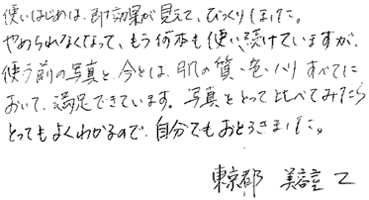 使いはじめは、即効果が見えて、びっくりしました。
やめられなくなって、もう何本も使い続けていますが、
使う前の写真と、今とは、肌の質・色・ハリすべてに
おいて、満足できています。写真をとって比べてみたら
とってもよくわかるので、自分でもおどろきました。
東京都 美容室 Z